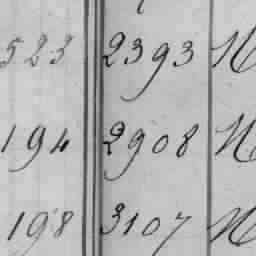 523 2393 N
194 2908 N
198 3107 N